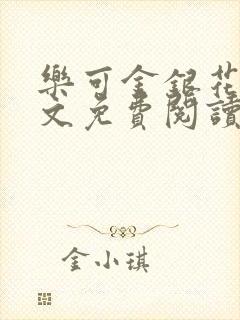 樂可金銀花
文免費閱讀
金小琪